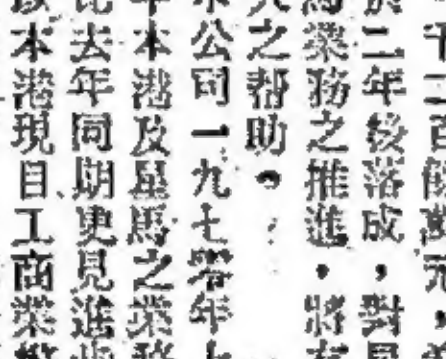 千二百餘萬元，
於二年後落成，對
業務之推進，將
之帮助。
本公司一九七零年
年本港及星馬之業務
比去年同期更見進步
本港現目工商業